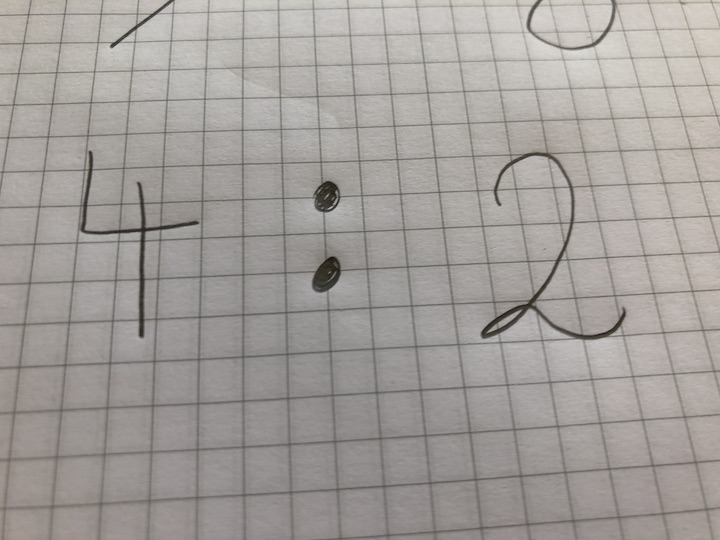 4 : 2